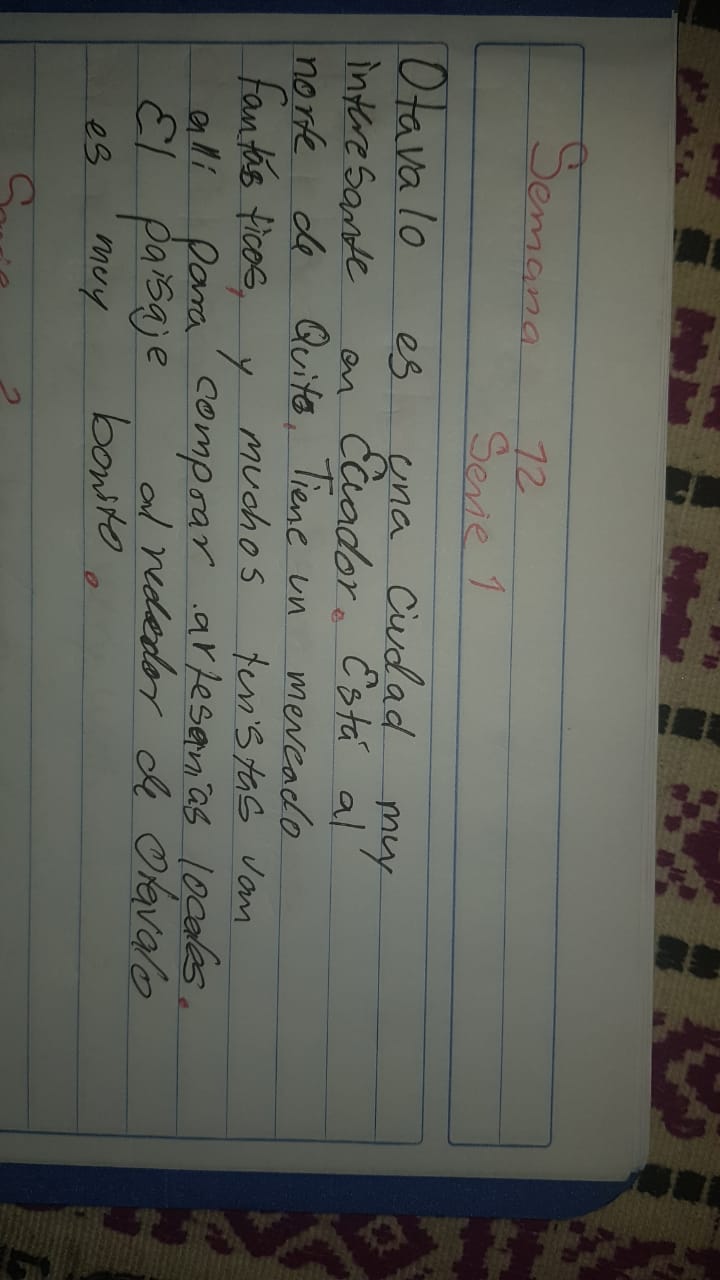 Semana 12
Serie 1
Otavalo es una ciudad muy
interesante en Ecuador. Está al
norte de Quito. Tiene un mercado
fantásticos, y muchos turistas van
allí para comprar artesanías locales.
El paisaje alrededor de Otavalo
es muy bonito.